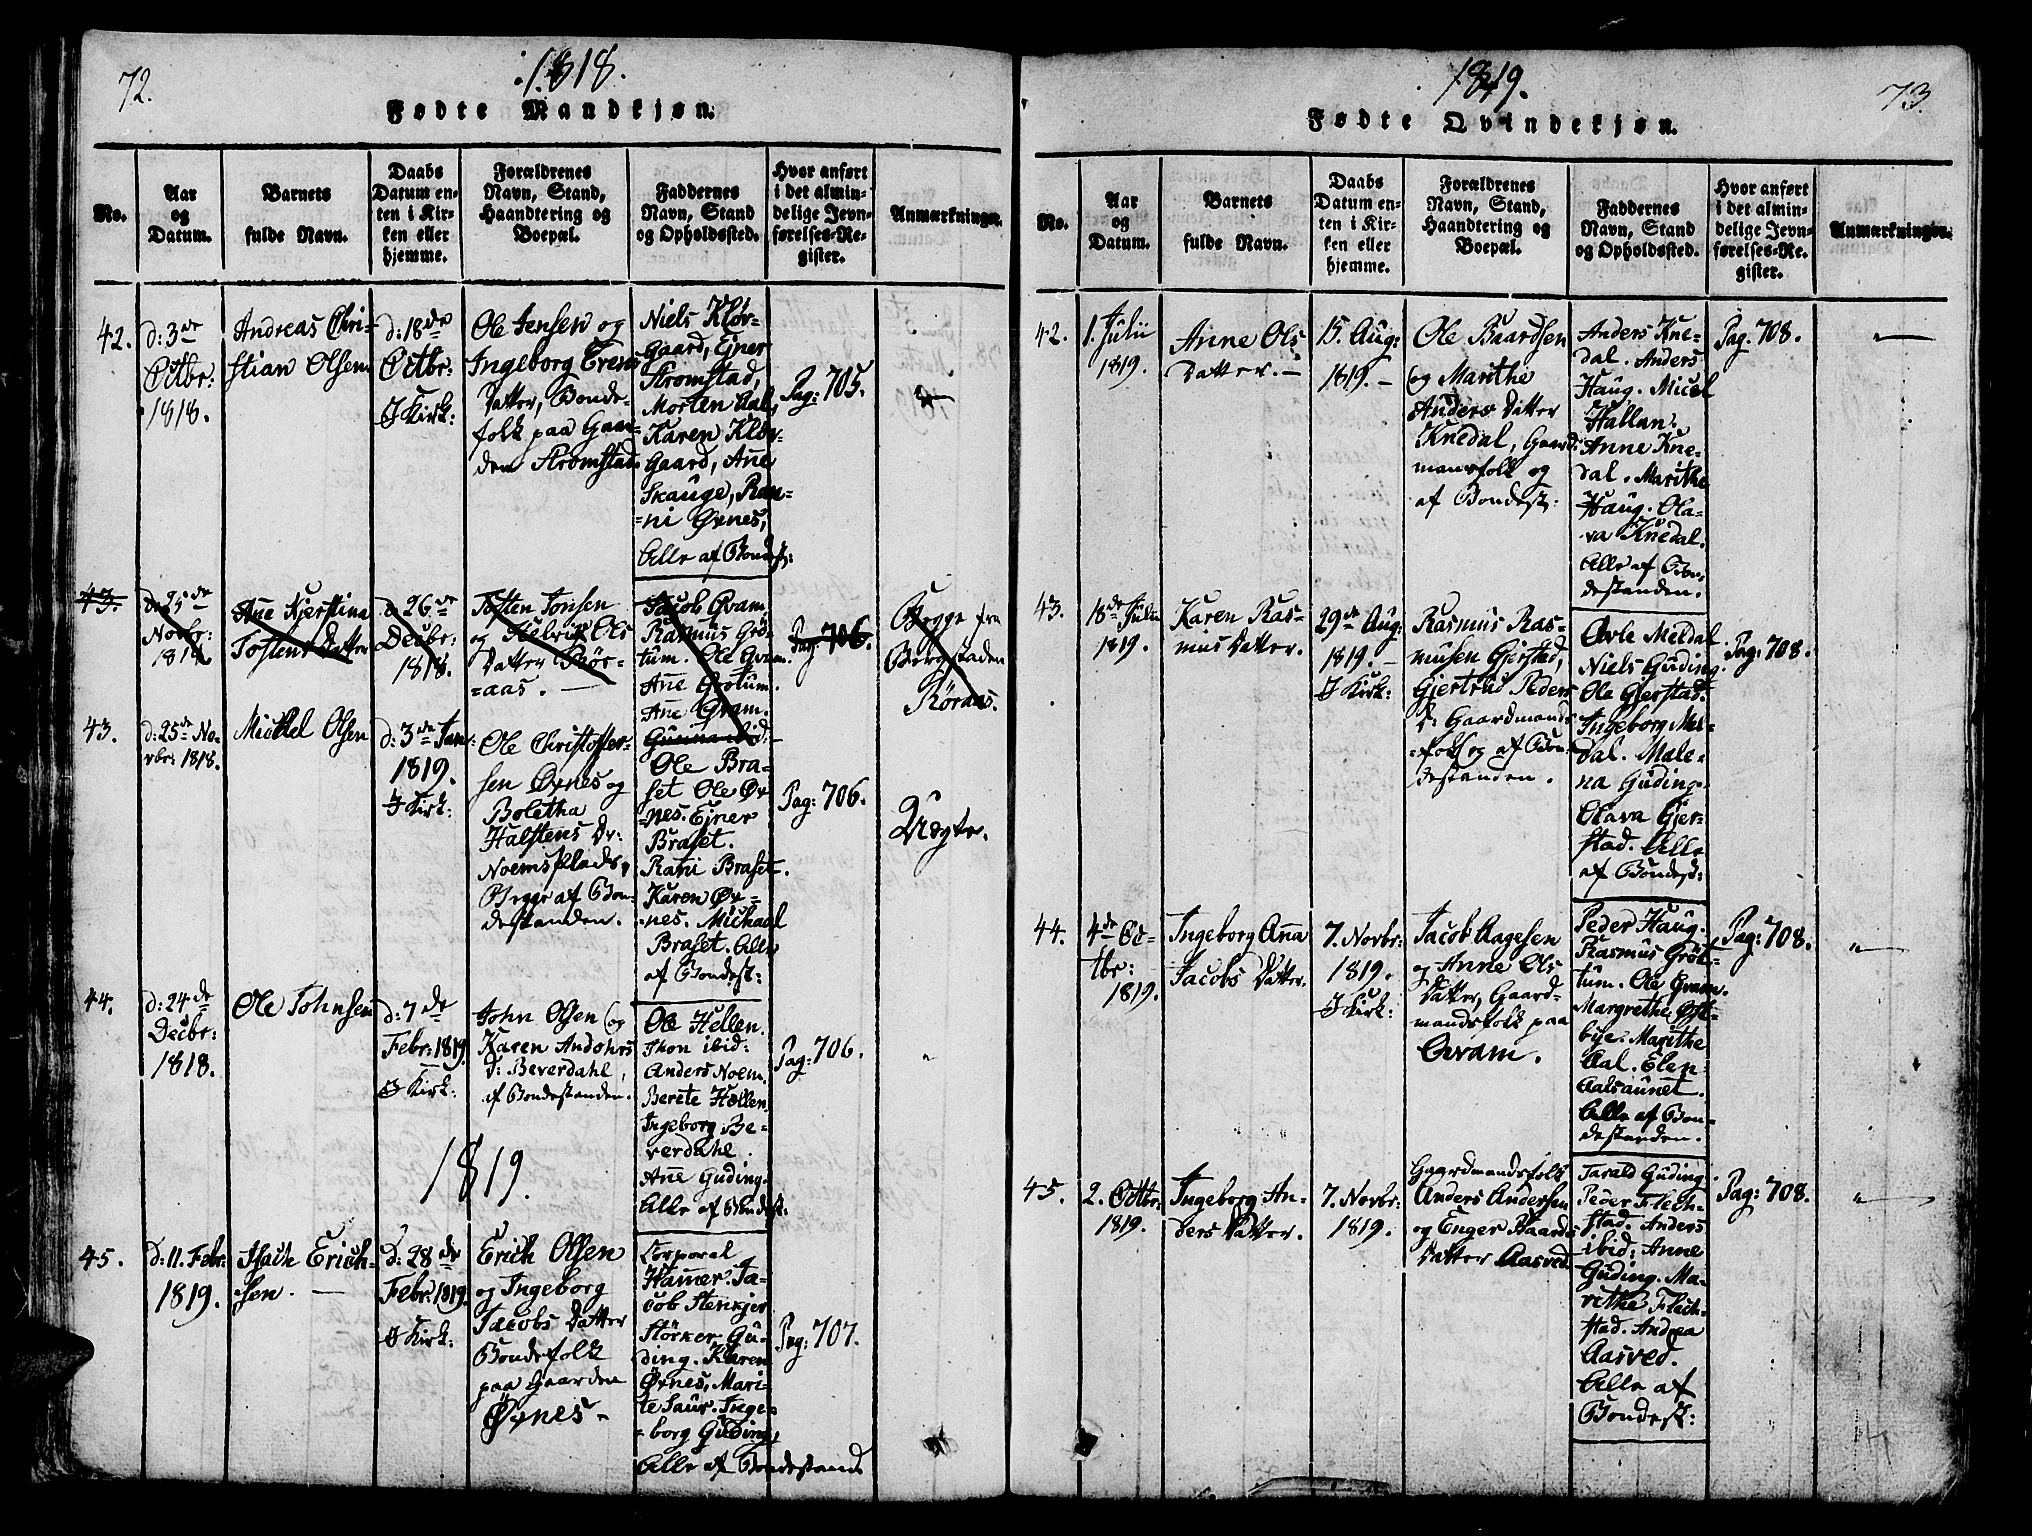 72.
1818.
Fødte Mandkjøn.
No.
Aar
og
Datum.
Barnets
fulde Navn.
Daabs
Datum en-
ten i Kir-
ken eller
hjemme.
Forældrenes
Navn, Stand,
Haandtering og
Boepæl.
Faddernes
Navn, Stand
og Opholdssted.
Hvor anført
i det almin-
delige Jevn-
førelses-Re-
gister.
Anmærkninger.
42.
d: 3de
Octbr:
1818.
Andreas Chri-
stian Olsen
d: 18de
Octbr:
I Kirk:
Ole Jensen og
Ingeborg
Datter, Bonde-
folk paa Gaar-
den Stromstad
Niels Kløv-
Gaard, Ejner
Stromstad,
Morten Aal,
Karen Kløv-
Gaard, Ane
Skauge, Ran-
=ni Ørnes,
Alle af Bondest:
Pag: 705.
43.
d: 25de
Novbr:
1818
Ane Kjerstina
Tostens Datter
d: 26de
Decbr:
1818.
Tosten Jonsen
og Ols
Datter Rör-
=aas. —
Jacob Qvam.
Rasmus Grö-
tum. Ole Qvam.
Ane Grötum.
Ane Qvam.
Gunna ibid:
Pag: 706.
Begge fra
Bergstaden
Röraas.
43.
d: 25de No-
vbr: 1818.
Mickel Olsen
d: 3de Janr:
1819.
I Kirk:
Ole Christoffer-
sen Ørnes og
Boletha
Halstens Dr:
Noemsplads,
Begge af Bon-
destanden.
Ole Bra-
set Ole Ør-
=nes. Ejner
Braset.
Rani Braset.
Karen Ør-
=nes. Michael
Braset. Alle
af Bondest:
Pag: 706.
Uægte.
44.
d: 24de
Decbr:
1818.
Ole Johnsen
d: 7de
Febr: 1819.
I Kirk:
John Olsen og
Karen Andohrs
D: Beverdahl,
af Bondestanden.
Ole Hellen.
Skon ibid:
Anders Noem.
Berete Hellen.
Ingeborg Be-
verdahl.
Ane Guding.
Alle af Bondest:
Pag: 706.
"
1819.
45.
d: 11. Febr:
1819.
Isach Erich-
sen. —
D: 28de
Febr: 1819.
I Kirk:
Erich Olsen
og Ingeborg
Jacobs Datter
Bondefolk
paa Gaarden
Ørnes-
Corporal
Hamer. Ja-
cob Stenkjer
Störker Gu-
ding. Karen
Ørnes, Mari-
te Saur. Inge-
=borg Guding,
Alle af Bondestand
Pag: 707.
73.
1819.
Fødte Qvindekjøn.
No.
Aar
og
Datum.
Barnets
fulde Navn.
Daabs
Datum en-
ten i Kir-
ken eller
hjemme.
Forældrenes
Navn, Stand,
Haandtering og
Boepæl.
Faddernes
Navn, Stand
og Opholdssted.
Hvor anført
i det almin-
delige Jevn-
førelses-Re-
gister.
Anmærkninger.
42.
1. Julii
1819.
Anne Ols
Datter. —
15. Aug:
1819. —
Ole Baardsen
og Marithe
Anders Datter
Knedal, Gaard-
mansfolk og
af Bondest:
Anders Kne-
dal. Anders
Haug. Micel
Hallan.
Anne Kne-
dal. Marithe
Haug. Ola-
va Knedal.
Alle af Bon-
destanden.
Pag: 708.
43.
18de Julii
1819.
Karen Ras-
mus Datter.
29de Aug:
1819. —
I Kirk:
Rasmus Ras-
musen Gjerstad,
Gjertrud Peders
D: Gaardmands-
=folk og af Bon-
destanden.
Ovle Meldal
Niels Guding.
Ole Gjerstad.
Ingeborg Mel-
dal. Male-
na Guding.
Olava Gjer-
stad. Alle
af Bondest:
Pag: 708.
44.
4de Oc-
tbr:
1819.
Ingeborg Anna
Jacobs Datter.
7. Novbr:
1819.
I Kirk:
Jacob Aagesen
og Anne Ols
Datter, Gaard-
mandsfolk paa
Qvam.
Peder Haug.
Rasmus Gröt-
tum. Ole Qvam.
Margrethe Øst-
bye. Marithe
Aal. Elen
Aalsaunet.
Alle af Bon-
destanden.
Pag: 708.
"
45.
2. Octbr:
1819.
Ingeborg An-
ders Datter.
7. Novbr:
1819.
Gaardmandsfolk
Anders Andersen
og Enger Haards
Datter Aasved
Tarald Guding.
Peder Flech-
stad. Anders
ibid: Anne
Guding. Ma-
rethe Flech-
stad. Andrea
Aasved.
Alle af
Bondest:
Pag: 708.
"